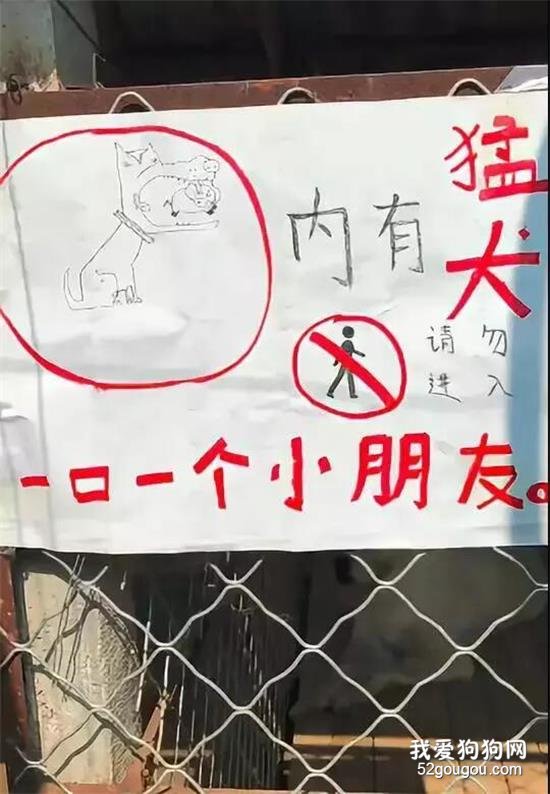 内有猛犬
请勿
进入
一口一个小朋友。
我爱狗狗网
52gougou.com